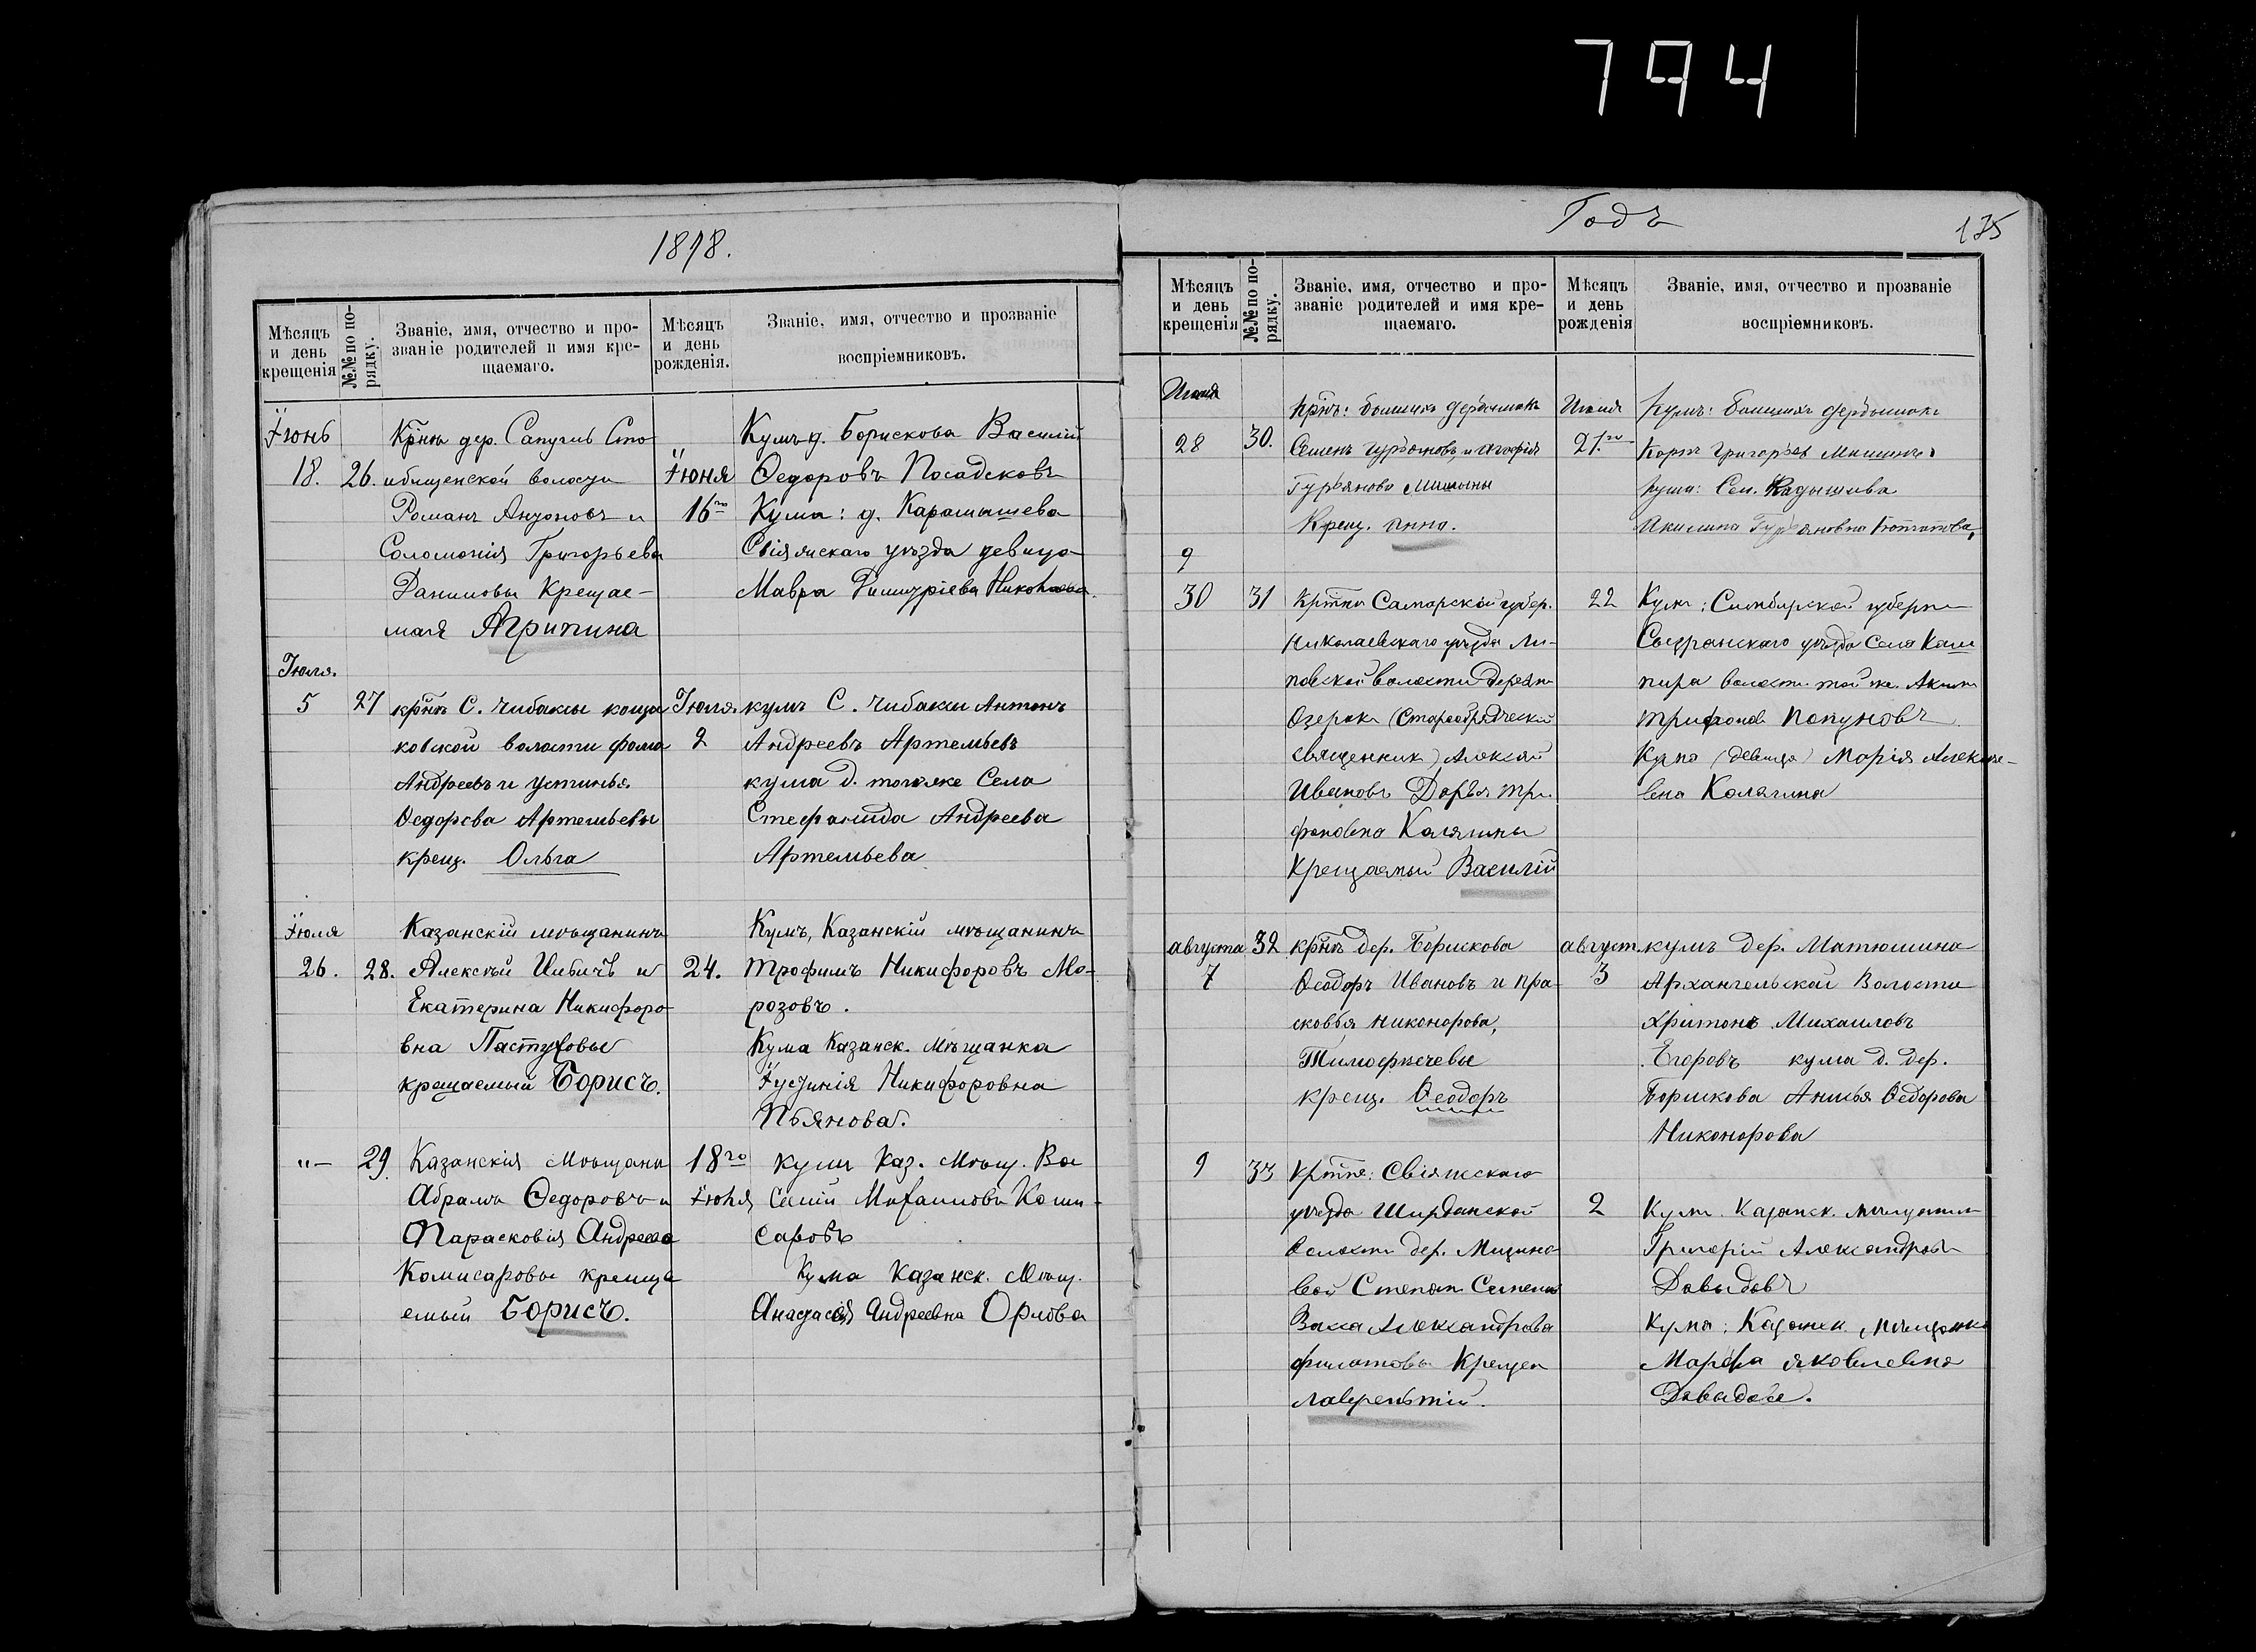 794
1898.
Мѣсяцъ и день крещенія
№№ по порядку.
Званіе, имя, отчество и прозваніе родителей и имя крещаемаго.
Мѣсяцъ и день рожденія.
Званіе, имя, отчество и прозваніе воспріемниковъ.
Їюнь
18. 26.
Кр̃нъ дер. Сапугль Сто
ибищенской волости
Романъ Антоновъ и
Соломонія Григорьева
Даниловы Крещае-
мая Агрипина
Їюня
16го
Кумъ д. Борискова Василій
Ѳедоровъ Посадсковъ
Кума: д. Карамышева
Свіяжскаго уѣзда девица
Мавра Димитріева Николаева.
Іюля.
5 27
кр̃нъ С. Чибакси коща
ковской волости фома
Андреевъ и Устинья
Ѳедорова Артемьевы
крещ. Ольга
Іюля.
2
кумъ С. Чибакси Антонъ
Андреевъ Артемьевъ
кума д. того же Села
Стефанида Андреева
Артемьева
Їюля
26. 28.
Казанскій мѣщанинъ
Алексѣй Ивичъ и
Екатерина Никифоро
вна Пастуховы
крещаемый Борисъ.
24.
Кумъ, Казанскій мѣщанинъ
Трофимъ Никифоровъ Мо-
розовъ.
Кума Казанск. Мѣщанка
Їустинія Никифоровна
Пьянова.
"— 29.
Казанскія Мѣщана
Абрамъ Ѳедоровъ и
Парасковія Андреева
Комисаровы креща
емый Борисъ.
18го
Їюня
кумъ Каз. Мѣщ. Ва
силій Михаиловъ Коми-
саровъ
Кума Казанск. Мѣщ.
Анастасія Андреевна Орлова
Годъ
135
Мѣсяцъ и день крещенія
№№ по порядку.
Званіе, имя, отчество и прозваніе родителей и имя крещаемаго.
Мѣсяцъ и день рожденія
Званіе, имя, отчество и прозваніе воспріемниковъ.
28 30.
Семенъ Гурьяновъ, и Агафія
Гурьянова Мишины
Крещ. Анна.
21.го
Григорьев Мишинъ
кума: Сел. Кадышева
Акилина Гурьяновна
9
30 31
Кртни Самарской губер.
Николаевскаго уѣзда Ли-
повской волости Деревни
Озерки (Старообрядческій
священник) Алексѣй
Ивановъ Дарья Три-
фоновна Калягины
Крещаемый Василій
22
Кумъ: Симбирской губерн
Сызранскаго уѣзда Села Каш
пира волости той же. Акимъ
Трифонов Попуновъ
Кума (девица) Марія Алексѣе-
вна Калягина
августа 32
7
кр̃нъ дер. Борискова
Ѳеодоръ Ивановъ и пра-
сковья Никонорова,
Тимофеичевы
крещ. Ѳеодоръ
август.
3
кумъ дер. Матюшина
Архангельской Волости
Харитонъ Михаиловъ
Егоровъ кума д. дер.
Борискова Анисья Ѳедорова
Никонорова
9 33
Кртне: Свіяжскаго
уѣзда Ширданской
волости дер. Мизино
вой Степан Семенов
Васса Александрова
филатовы Крещен
Лаврентій.
2
Кум. Казанск. мѣщанин
Григорій Александровъ
Давыдовъ
Кума: Казанск. мѣщанка
Марфа Яковлевна
Давыдова.